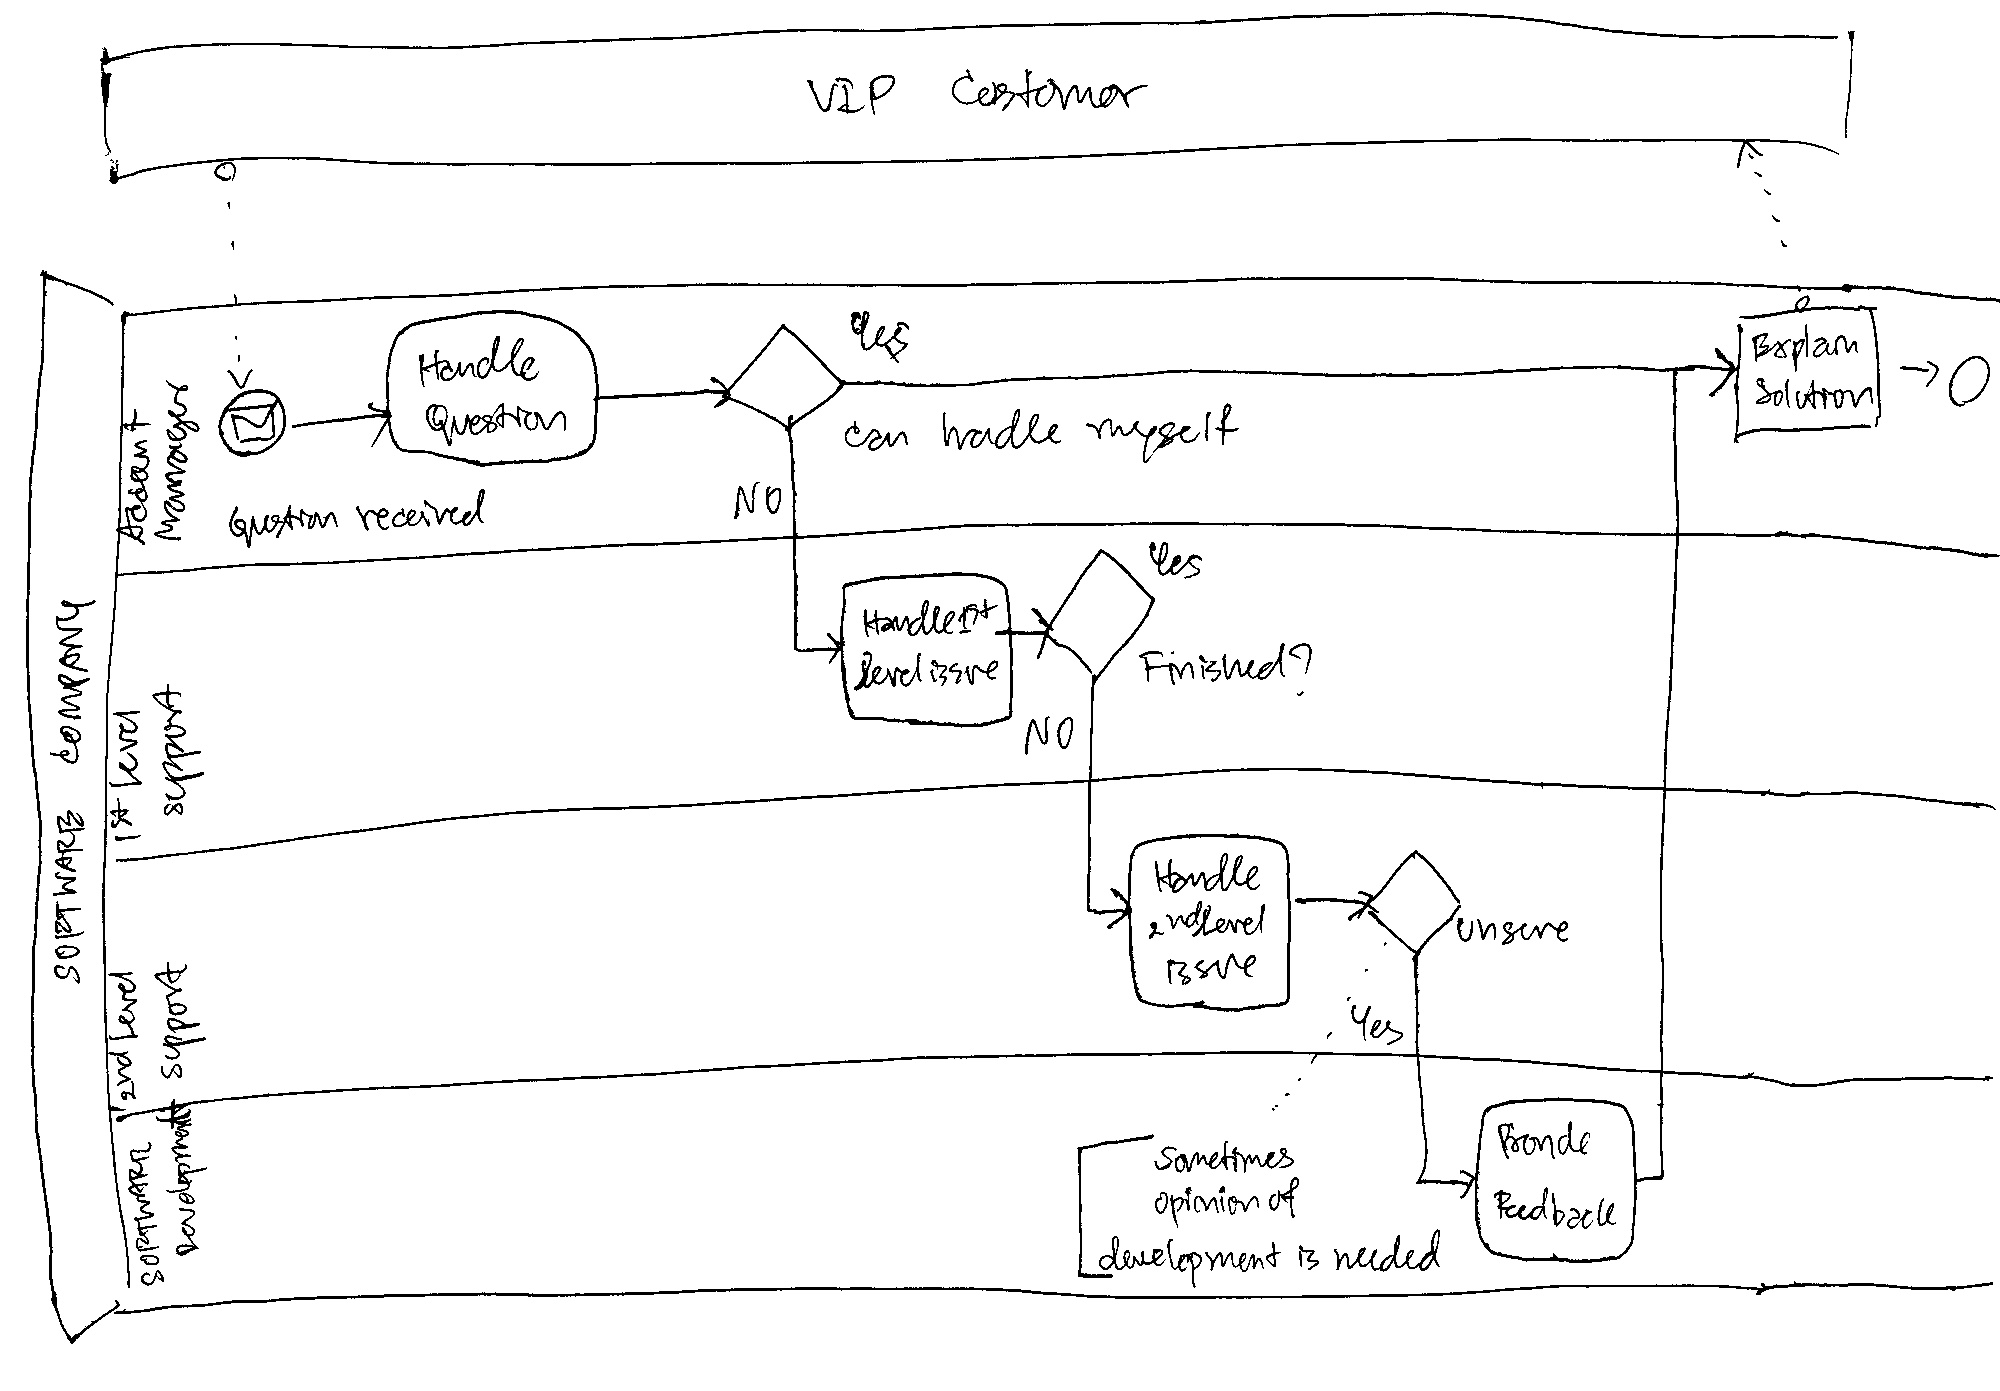 VIP Customer
SOFTWARE COMPANY
Account
Manager
Question received
Handle
Question
Yes
can hadle myself
NO
Explain
Solution
1st Level
support
Handle 1st
level issue
Yes
Finished?
NO
2nd Level
support
Handle
2nd Level
issue
unsure
Yes
SOFTWARE
Development
Sometimes
opinion of
development is needed
Provide
Feedback